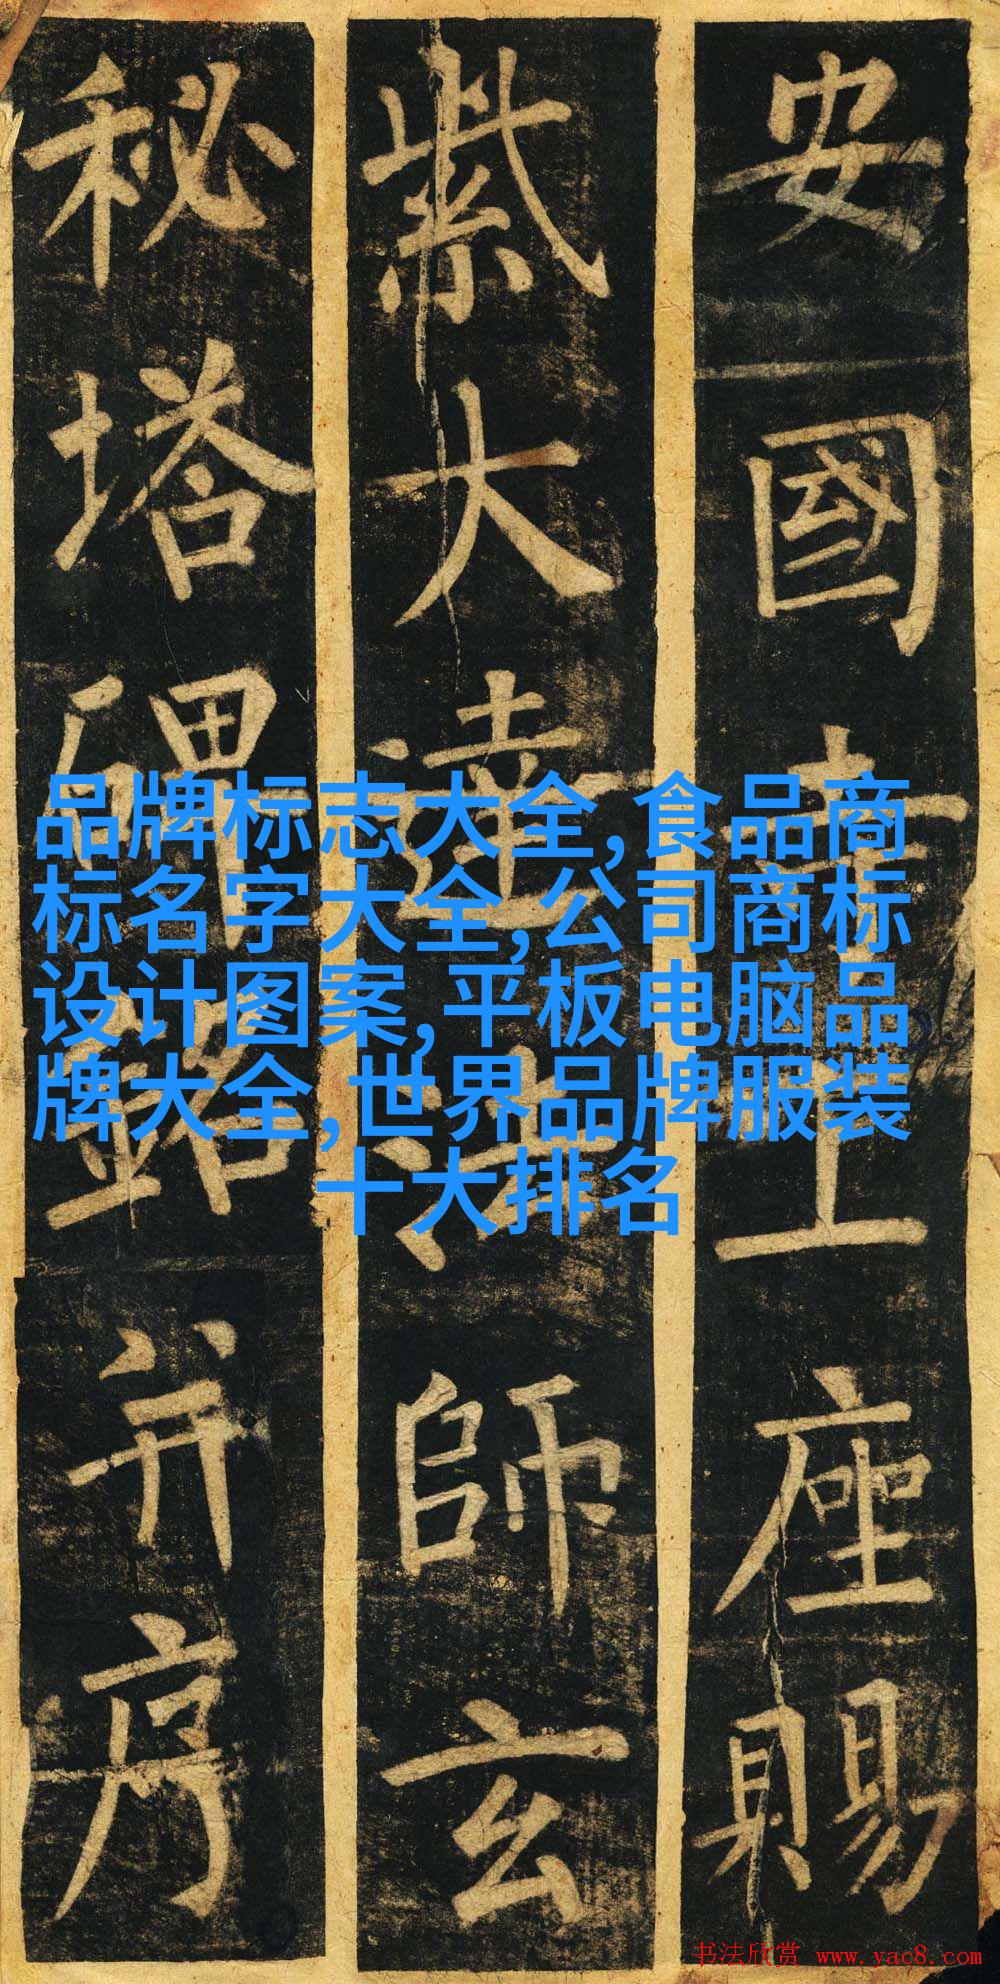 安國寺上座賜
紫大達法師玄
秘塔碑銘并序
品牌标志大全,食品商
标名字大全,公司商标
设计图案,平板电脑品
牌大全,世界品牌服装
十大排名
书法欣赏 www.yac8.com